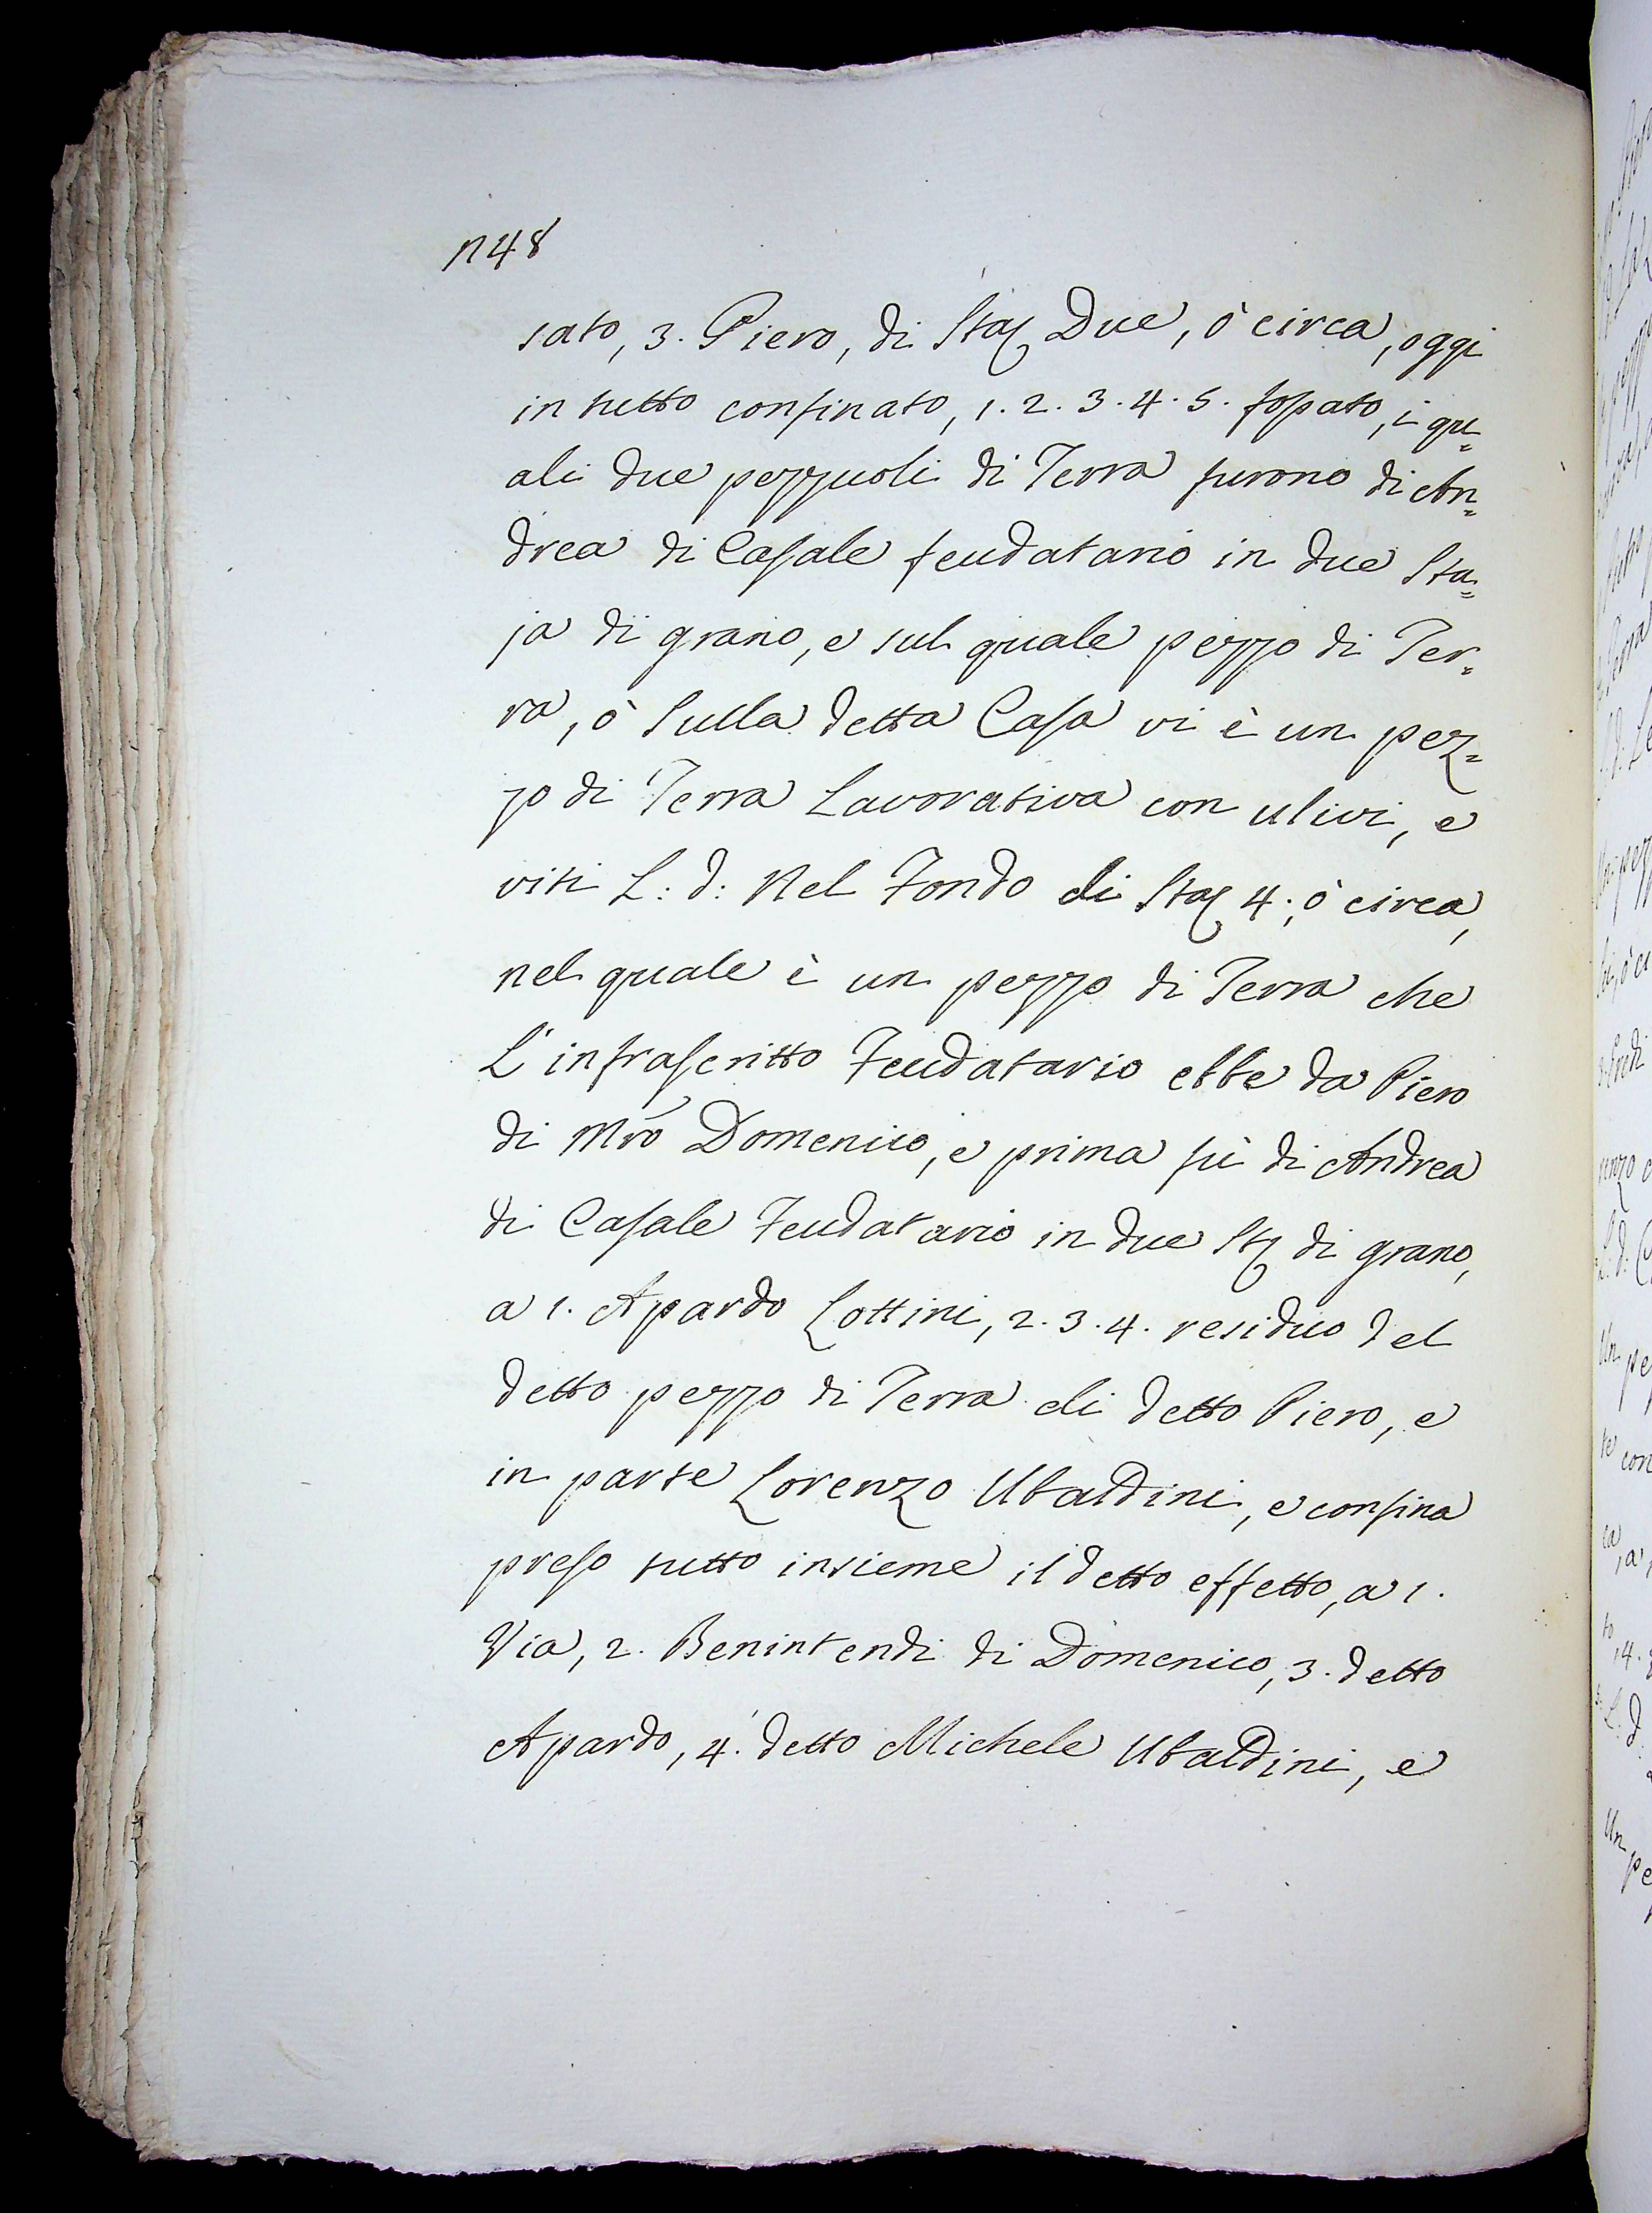 1148
sato, 3. Piero, di Staj Due, ò circa, oggi
in tutto confinato, 1. 2. 3. 4. 5. fossato, i qu=
ali due pezzuoli di Terra furono di An=
drea di Casale feudatario in due Sta=
ja di grano, e sul quale pezzo di Ter=
ra, ò sulla detta Casa vi è un pez=
zo di Terra Lavorativa con ulivi, e
viti L: d: Nel Fondo di Staj 4:, ò circa,
nel quale è un pezzo di Terra che
L'infrascritto Feudatario ebbe da Piero
di Mro Domenico, e prima fù di Andrea
di Casale Feudatario in due Stj di grano,
a 1. Apardo Lottini, 2. 3. 4. residuo del
detto pezzo di Terra di detto Piero, e
in parte Lorenzo Ubaldini, e confina
preso tutto insieme il detto effetto, a 1.
Via, 2. Benintendi di Domenico, 3. detto
Apardo, 4. detto Michele Ubaldini, e